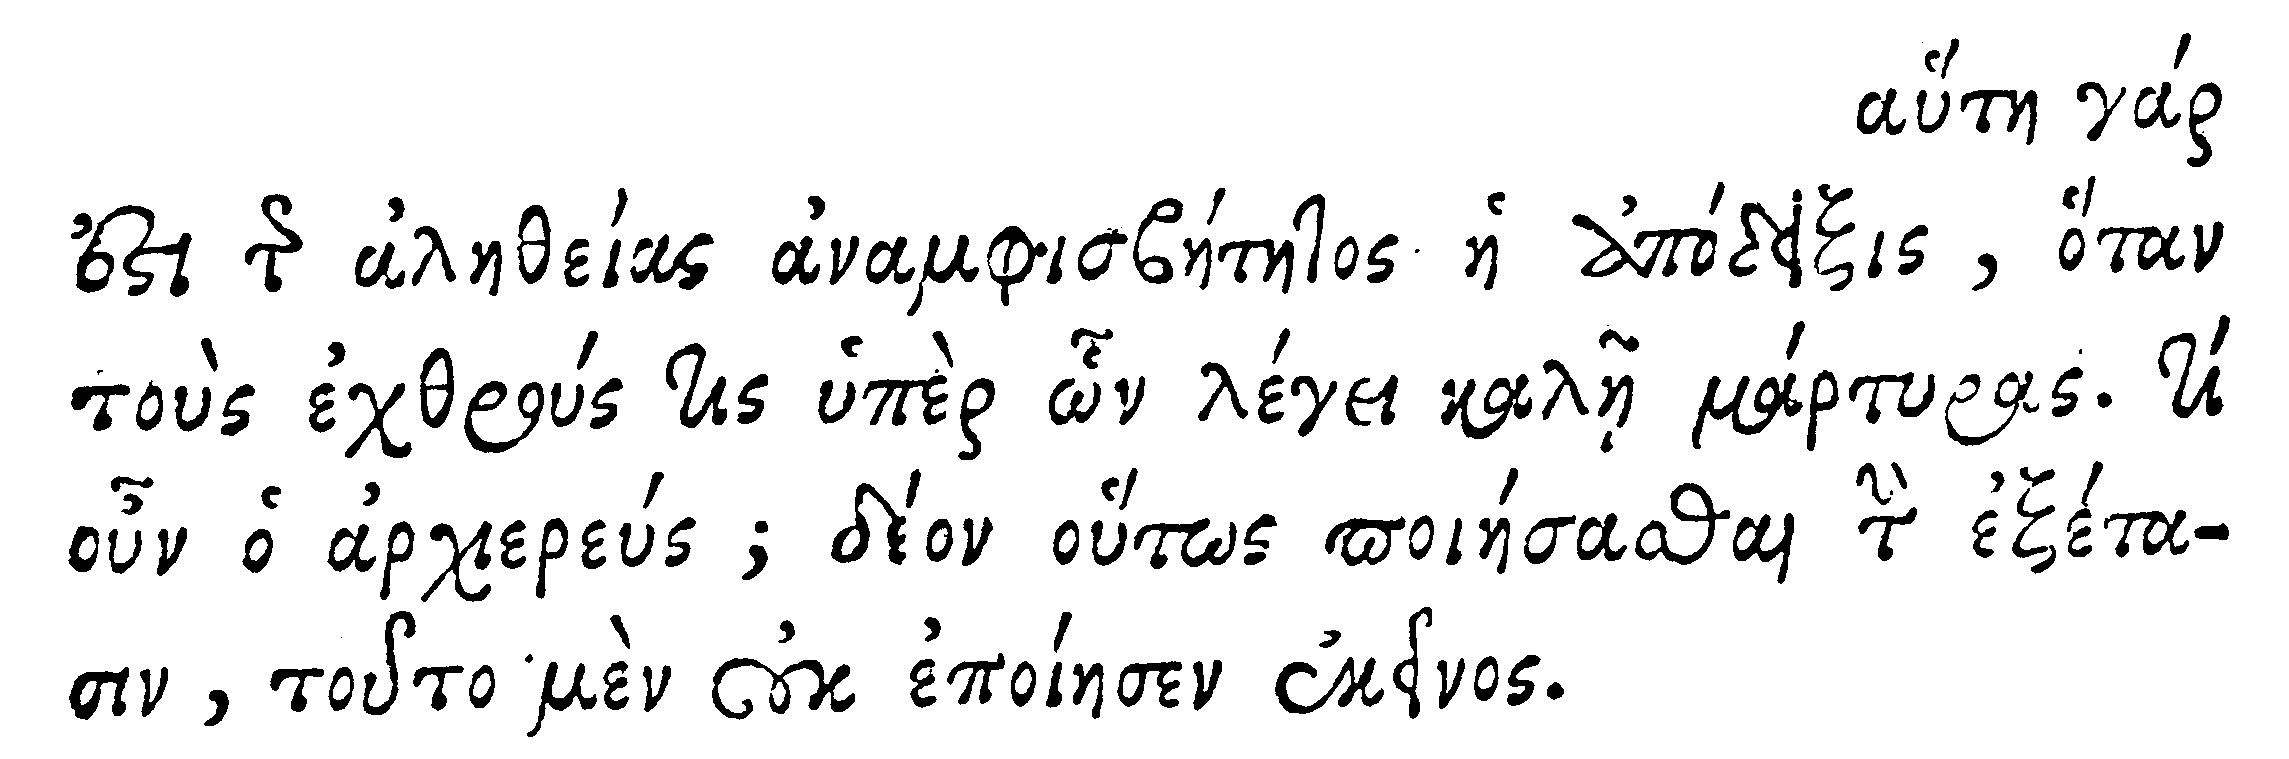 αὕτη γάρ
ἐστι τῆς ἀληθείας ἀναμφισβήτητος ἡ ἀπόδειξις, ὅταν
τοὺς ἐχθρούς τις ὑπὲρ ὧν λέγει καλῇ μάρτυρας. τί
οὖν ὁ ἀρχιερεύς; δέον οὕτως ποιήσασθαι τὴν ἐξέτα-
σιν, τοῦτο μὲν οὐκ ἐποίησεν ἐκεῖνος.